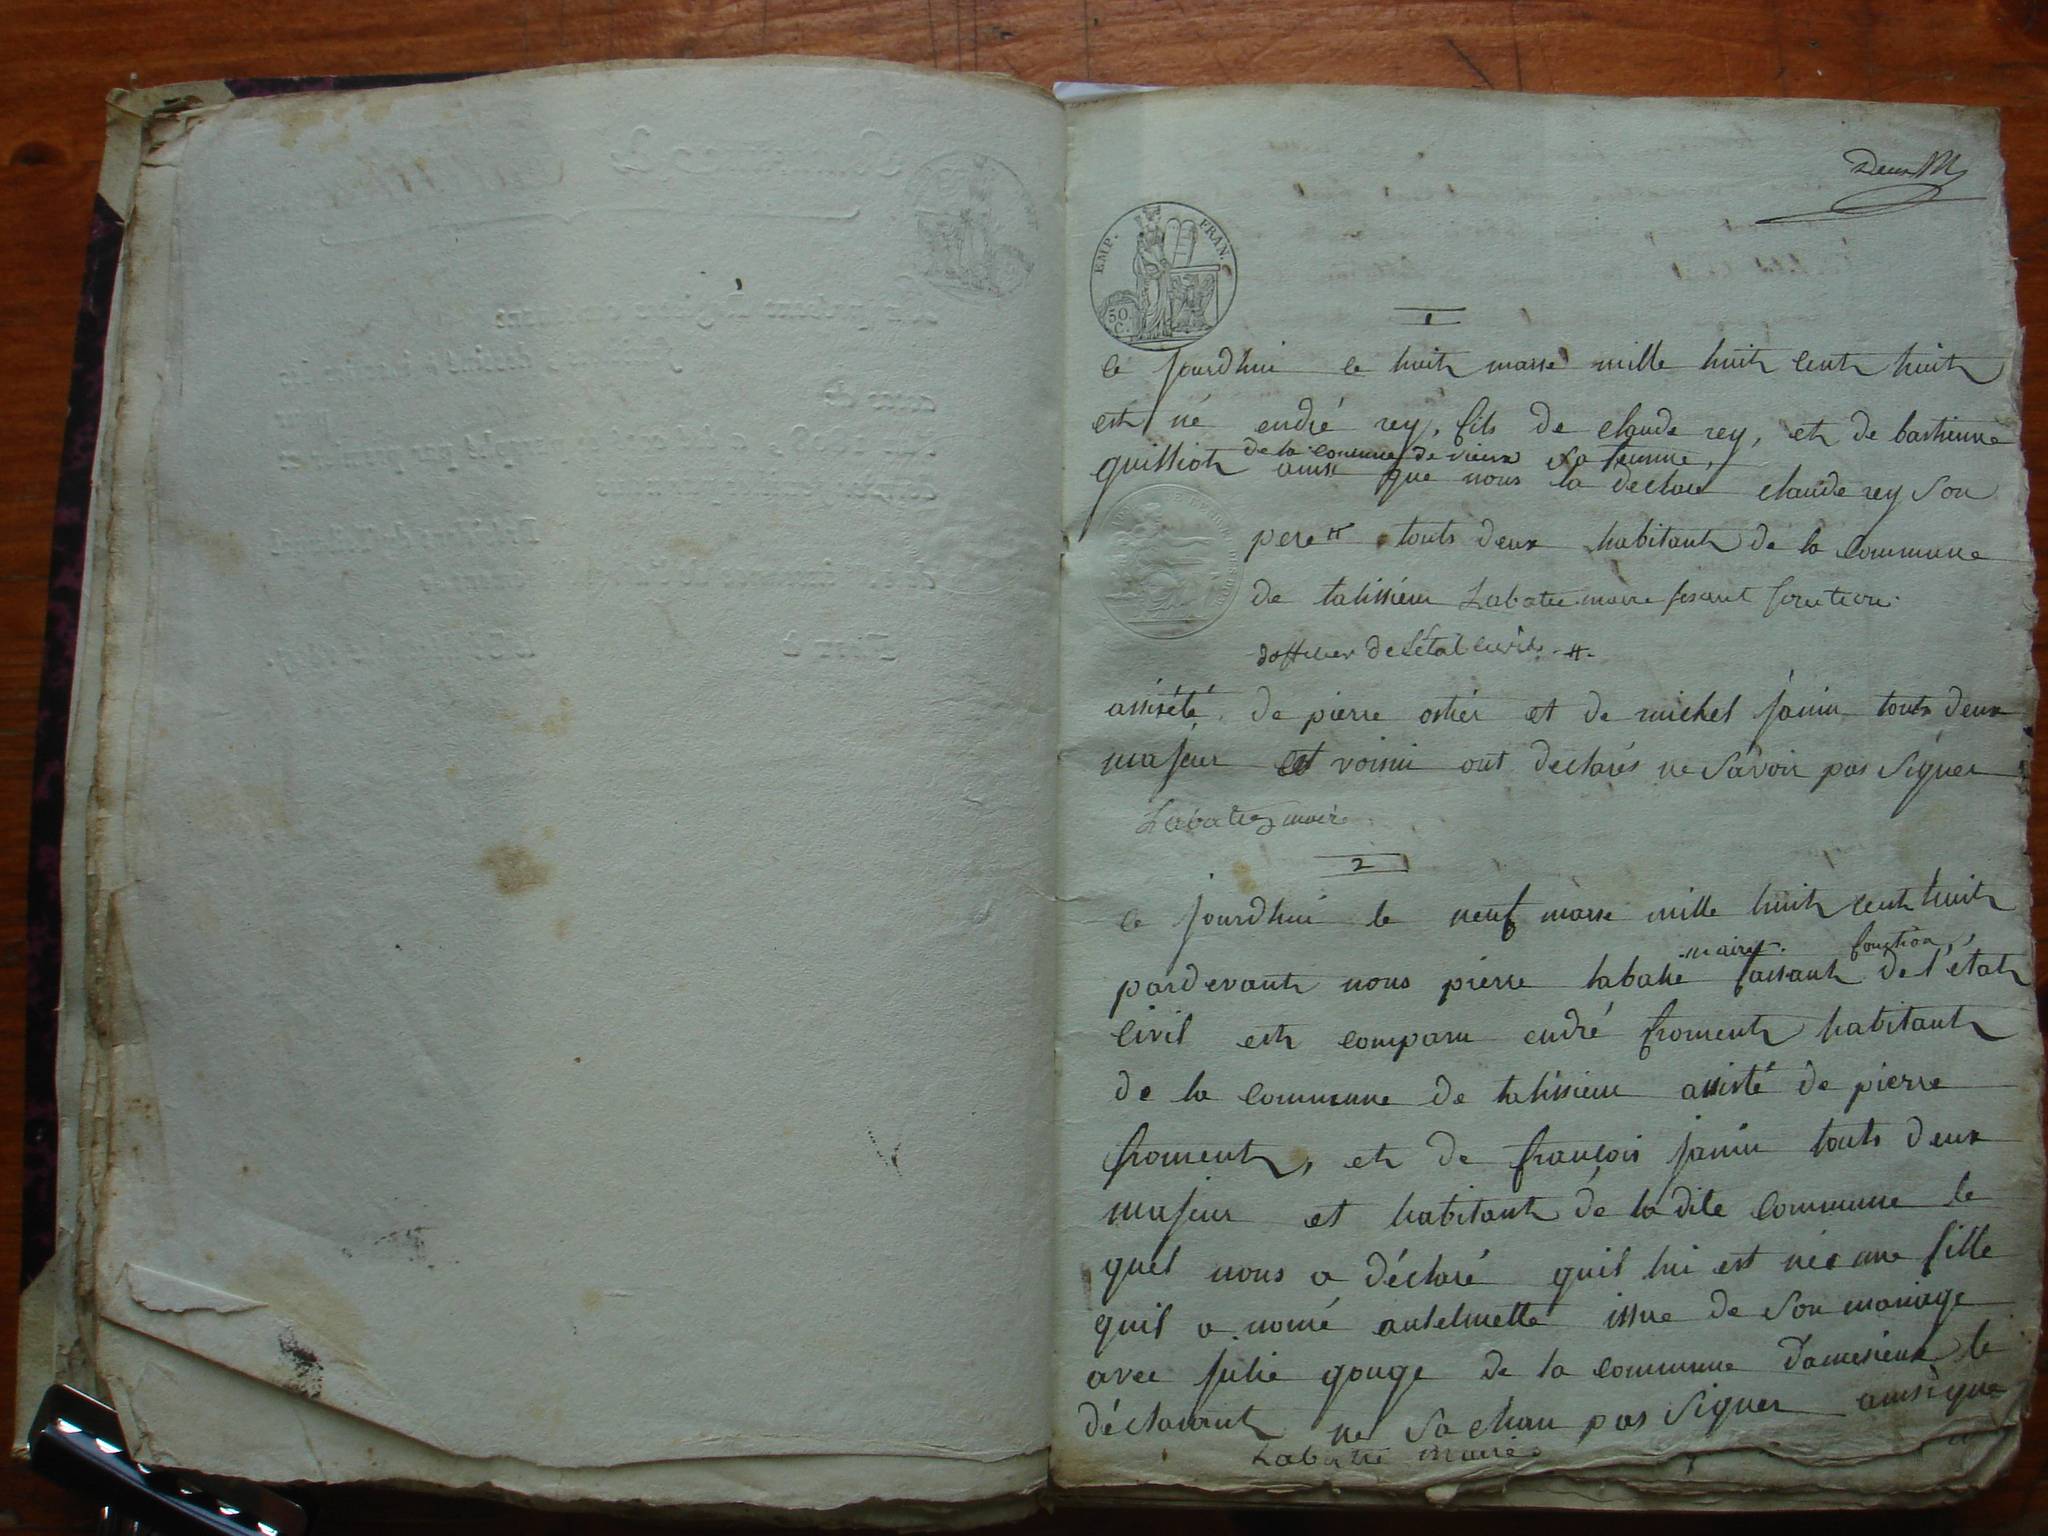 Deux
EMP. FRAN.
50 C.
1
Ce jourdhui le huit marse mille huit cent huit
est né endré rey, fils de claude rey, et de bastienne
guillioh de la commune de vieux sa femme,
ainsi que nous la declare claude rey Son
pere # touts deux habitant de la commune
de talissieu Labatie maire fesant fonction
dofficier de l'état civil #
assisété de pierre ostier et de michel janin touts deux
majeur et voisin ont declarés ne Savoir pas Signer
Labatie maire
2
Ce jourdhui le neuf marse mille huit cent huit
pardevant nous pierre labatie maire faisant fonction de l'état
Civil est comparu endré froment habitant
de la commune de talissieu assisté de pierre
froment, et de françois janin touts deux
majeur et habitant de la dite Commune le
quel nous a déclaré quil lui est née une fille
quil a nomé antelmette issue de Son mariage
avec julie gouge de la commune Damesieux le
déclarant ne Sachan pas Signer ainsi que
Labatie maire